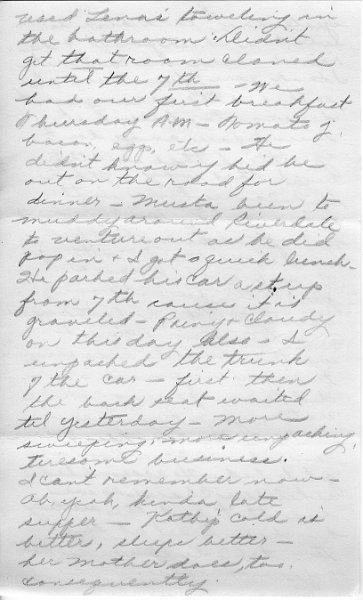 used Lena's toweling in
the bathroom. Didn't
get that room cleaned
until the 7th - We
had our first breakfast
Thursday A.M - Tomato j.
bacon, egg, etc - He
didn't know if he'd be
out on the road for
dinner - Musta been to
muddy around Riverdale
to venture out as he did
pop in & I got a quick lunch -
He parked his car a st. up
from 7th cause it is
graveled - Rainy & Cloudy
on this day also - I
unpacked the trunk
of the car - first then
the back seat waited
til yesterday - More
sweeping, more unpacking,
tiresome business.
I can't remember now -
Oh, yeh, kinda late
supper - Kathy's cold is
better, sleeps better -
her Mother does, too.
consequently.